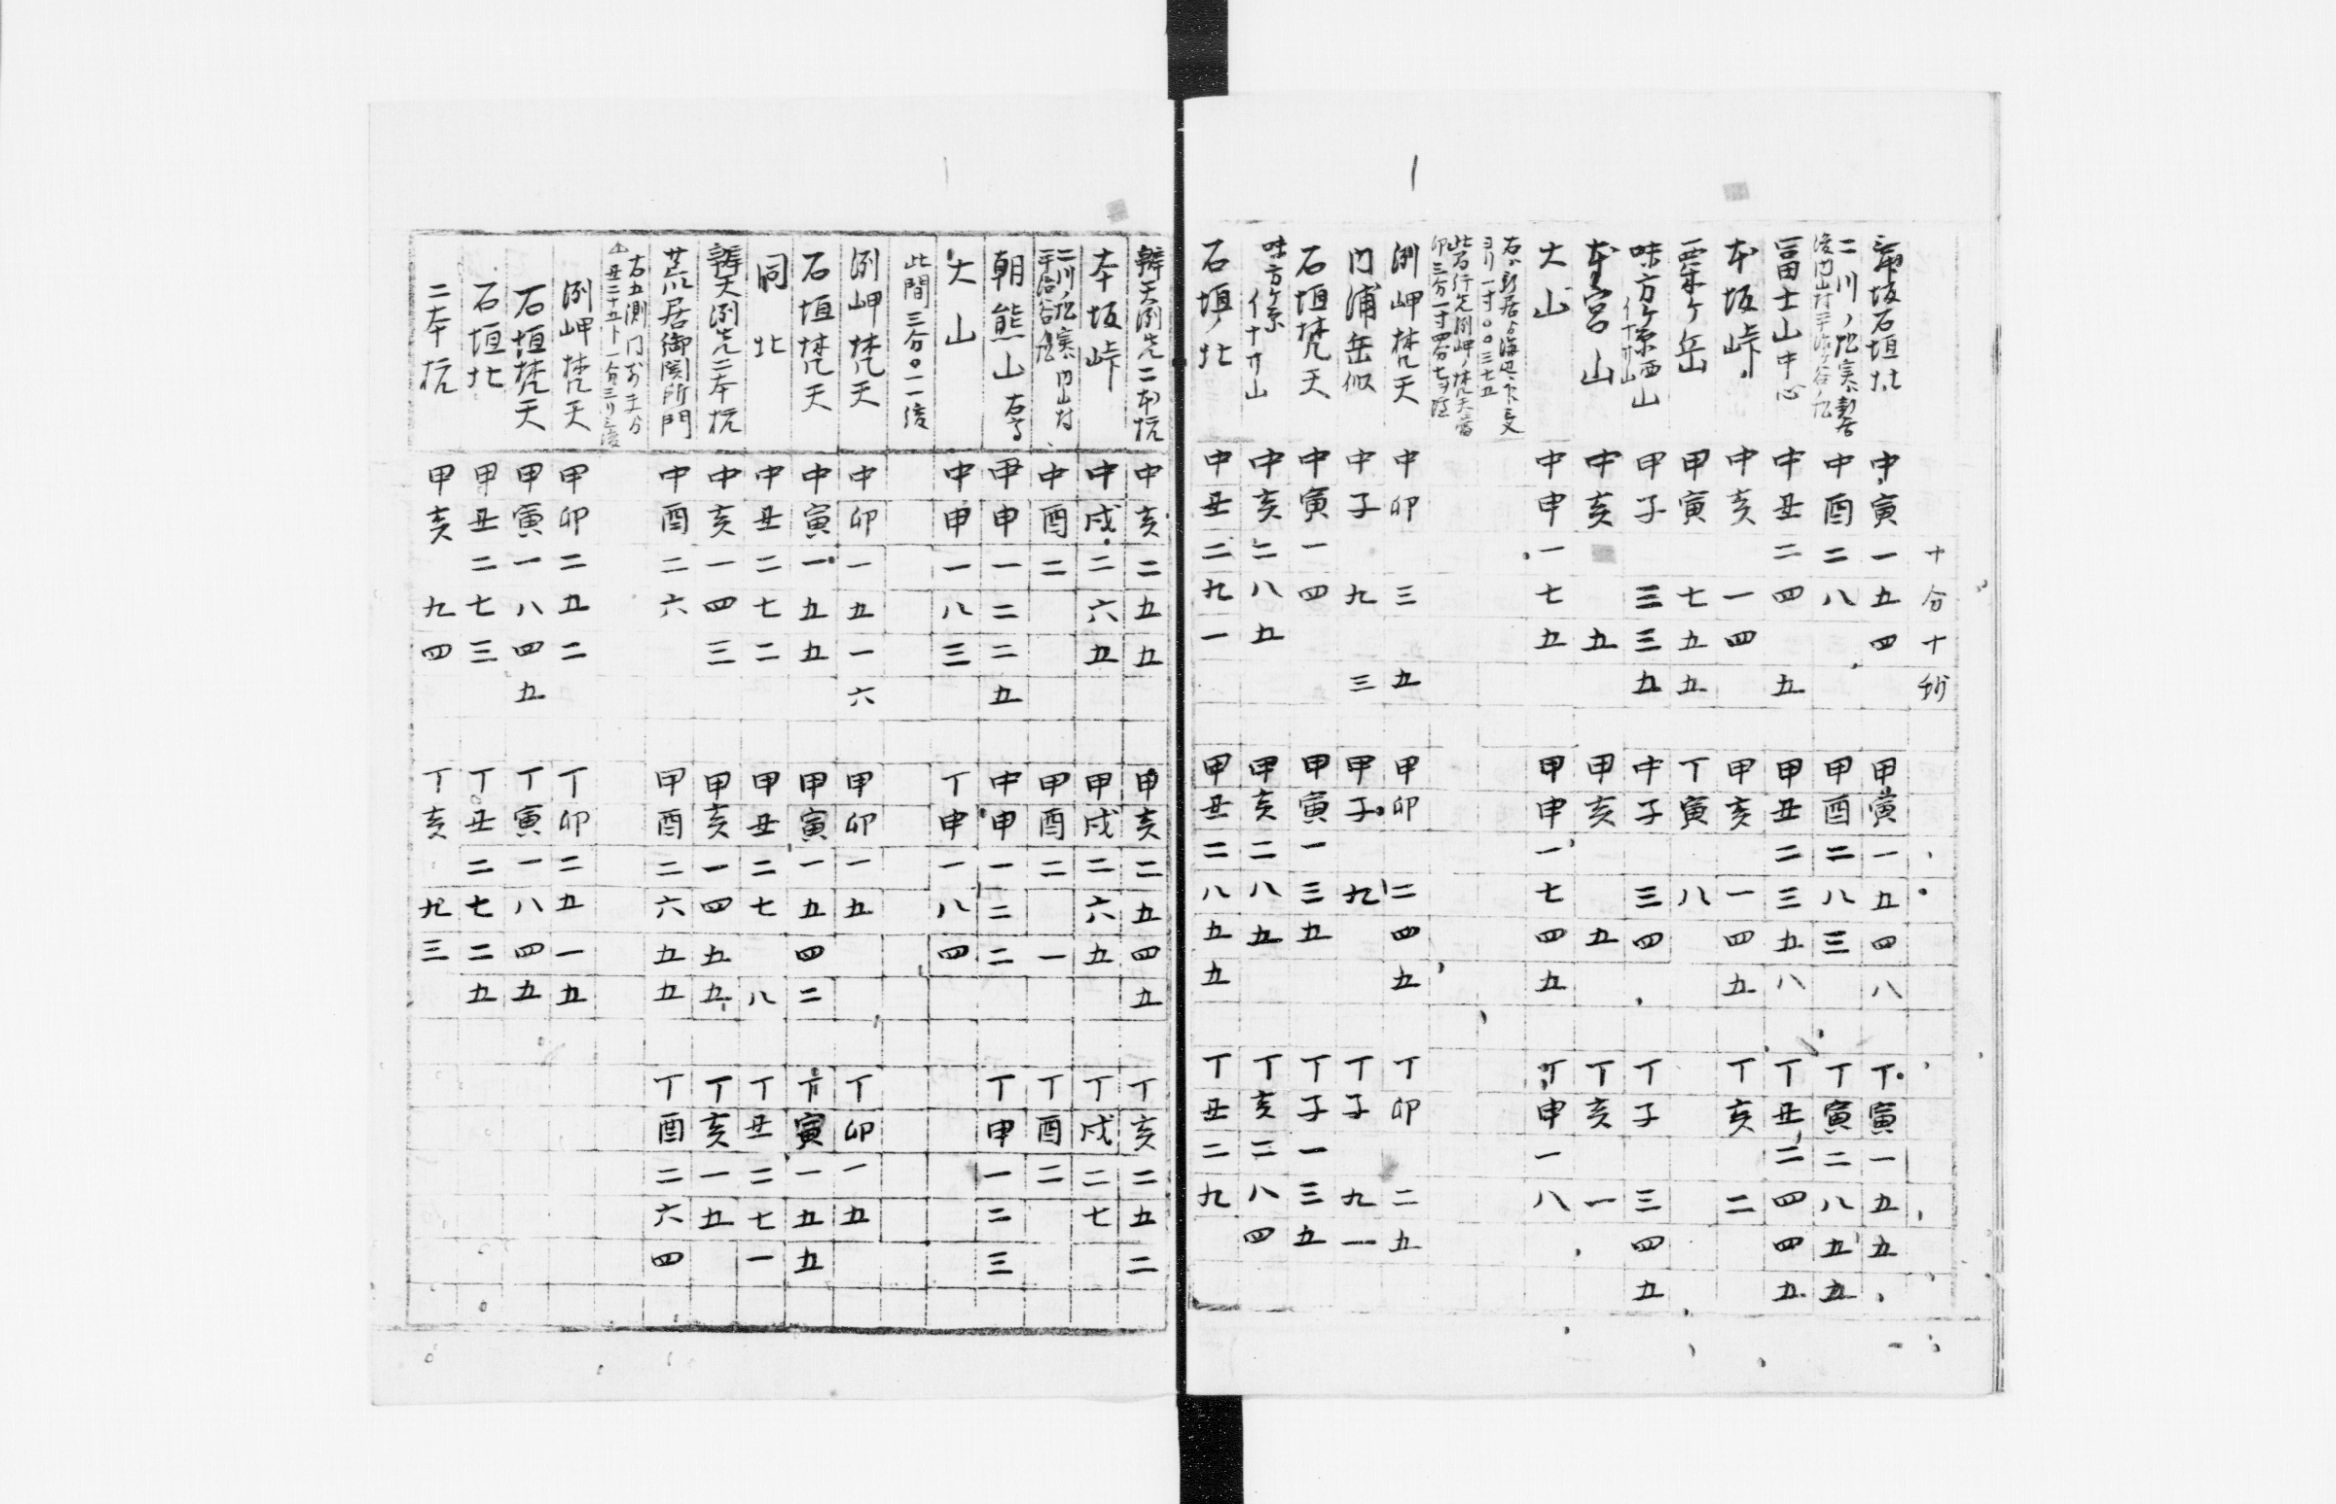 十分十秒
石垣北 中寅一五四 甲寅一五四八 丁寅一五五
中酉二八 甲酉二八三 丁寅二八五五
冨士山中心 中丑二四五 甲丑二三五八 丁丑二四四五
本坂峠 中亥一四 甲亥一四五 丁亥二
栗ケ岳 甲寅七五五 丁寅八
味方ケ原西山 甲子三三五 中子三四 丁子三四五
本宮山 中亥五 甲亥五 丁亥一
大山 中申一七五 甲申一七四五 丁申一八
渕岬梵天 中卯三五 甲卯二四五 丁卯二五
門浦岳似 中子九三 甲子九 丁子九一
石垣梵天 中寅一四 甲寅一三五 丁子一三五
味方ケ原 中亥二八五 甲亥二八五 丁亥二八四
石垣ノ北 中丑二九一 甲丑二八五五 丁丑二九
辨天渕先二本杭 中亥二五五 甲亥二五四五 丁亥二五二
本坂峠 中戌二六五 甲戌二六五 丁戌二七
中酉二 甲酉二一 丁酉二
朝熊山 甲申一二二五 中申一二二 丁申一二三
大山 中申一八三 丁申一八四
此間三分〇一一
渕岬梵天 中卯一五一六 甲卯一五 丁卯一五
石垣梵天 中寅一五五 甲寅一五四二 丁寅一五五
同北 中丑二七二 甲丑二七八 丁丑二七一
辨天渕先二本杭 中亥一四三 甲亥一四五五 丁亥一五
荒居御関所門 中酉二六 甲酉二六五五 丁酉二六四
渕岬梵天 甲卯二五二 丁卯二五一五
石垣梵天 甲寅一八四五 丁寅一八四五
石垣北 甲丑二七三 丁丑二七二五
二本杭 甲亥九四 丁亥九三